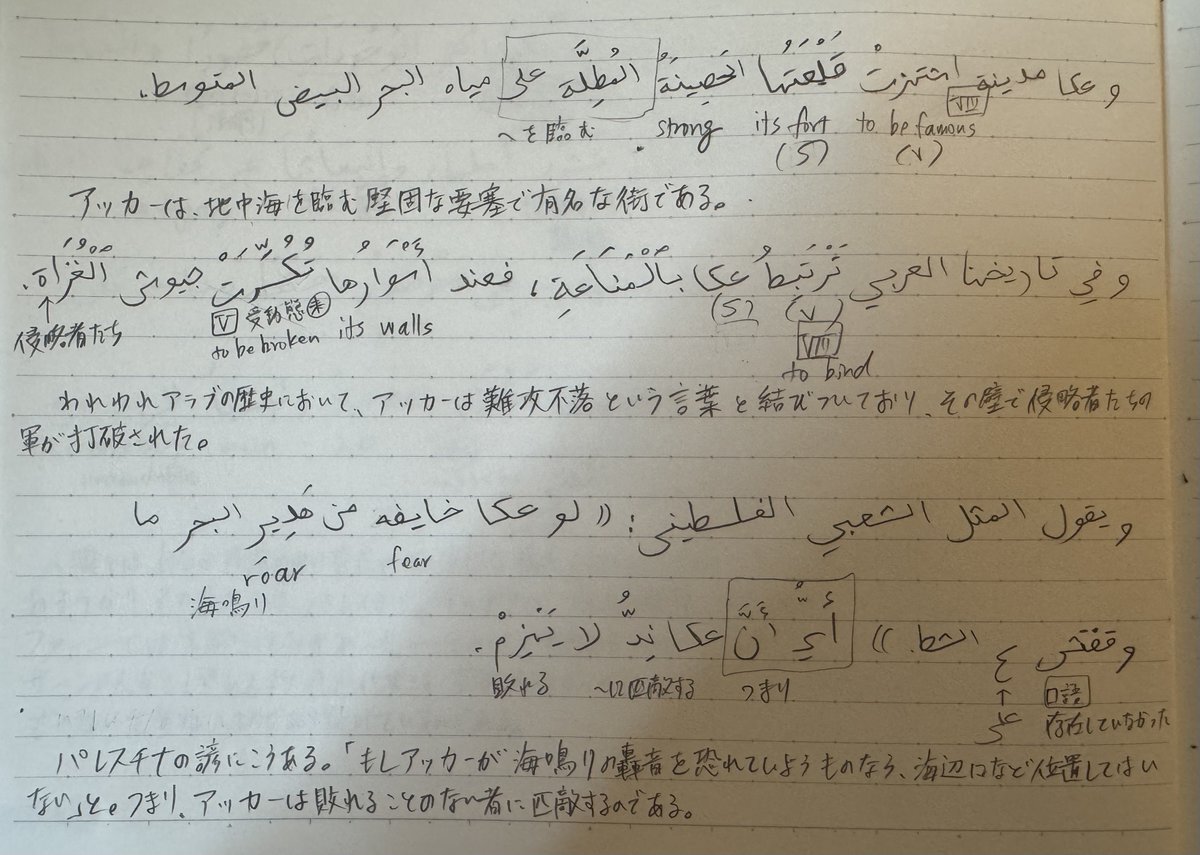 وعكا مدينة اشتهرتْ قَلْعَتُها الحَصِينَةُ المُطِلَّة على مياه البحر البيض المتوسط.
VIII
〜を臨む strong its fort to be famous
(S) (V)
アッカーは、地中海を臨む堅固な要塞で有名な街である。
وفي تاريخنا العربي تَرْتَبِطُ عكا بالْمَناعَةِ، فعند أَسْوَارُها تُكُسِّرَتْ جيوش الْغُزَاة.
↑ V 受動態 (S) (V)
侵略者たち to be broken its walls VIII
to bind
われわれアラブの歴史において、アッカーは難攻不落という言葉と結びついており、その壁で侵略者たちの
軍が打破された。
ويقول المثل الشعبي الفلسطيني: ((لو عكا خايفه من هَدِير البحر ما
roar fear
海鳴り
وقفتش ع الشط.)) أَيْ أَنَّ عكا نِدٌّ لا يَنْهَزِمُ.
敗れる 〜に匹敵する つまり ↑ 口語
على 存在していなかった
パレスチナの諺にこうある。「もしアッカーが海鳴りの轟音を恐れていようものなら、海辺になど位置してはい
ない」と。つまり、アッカーは敗れることのない者に匹敵するのである。